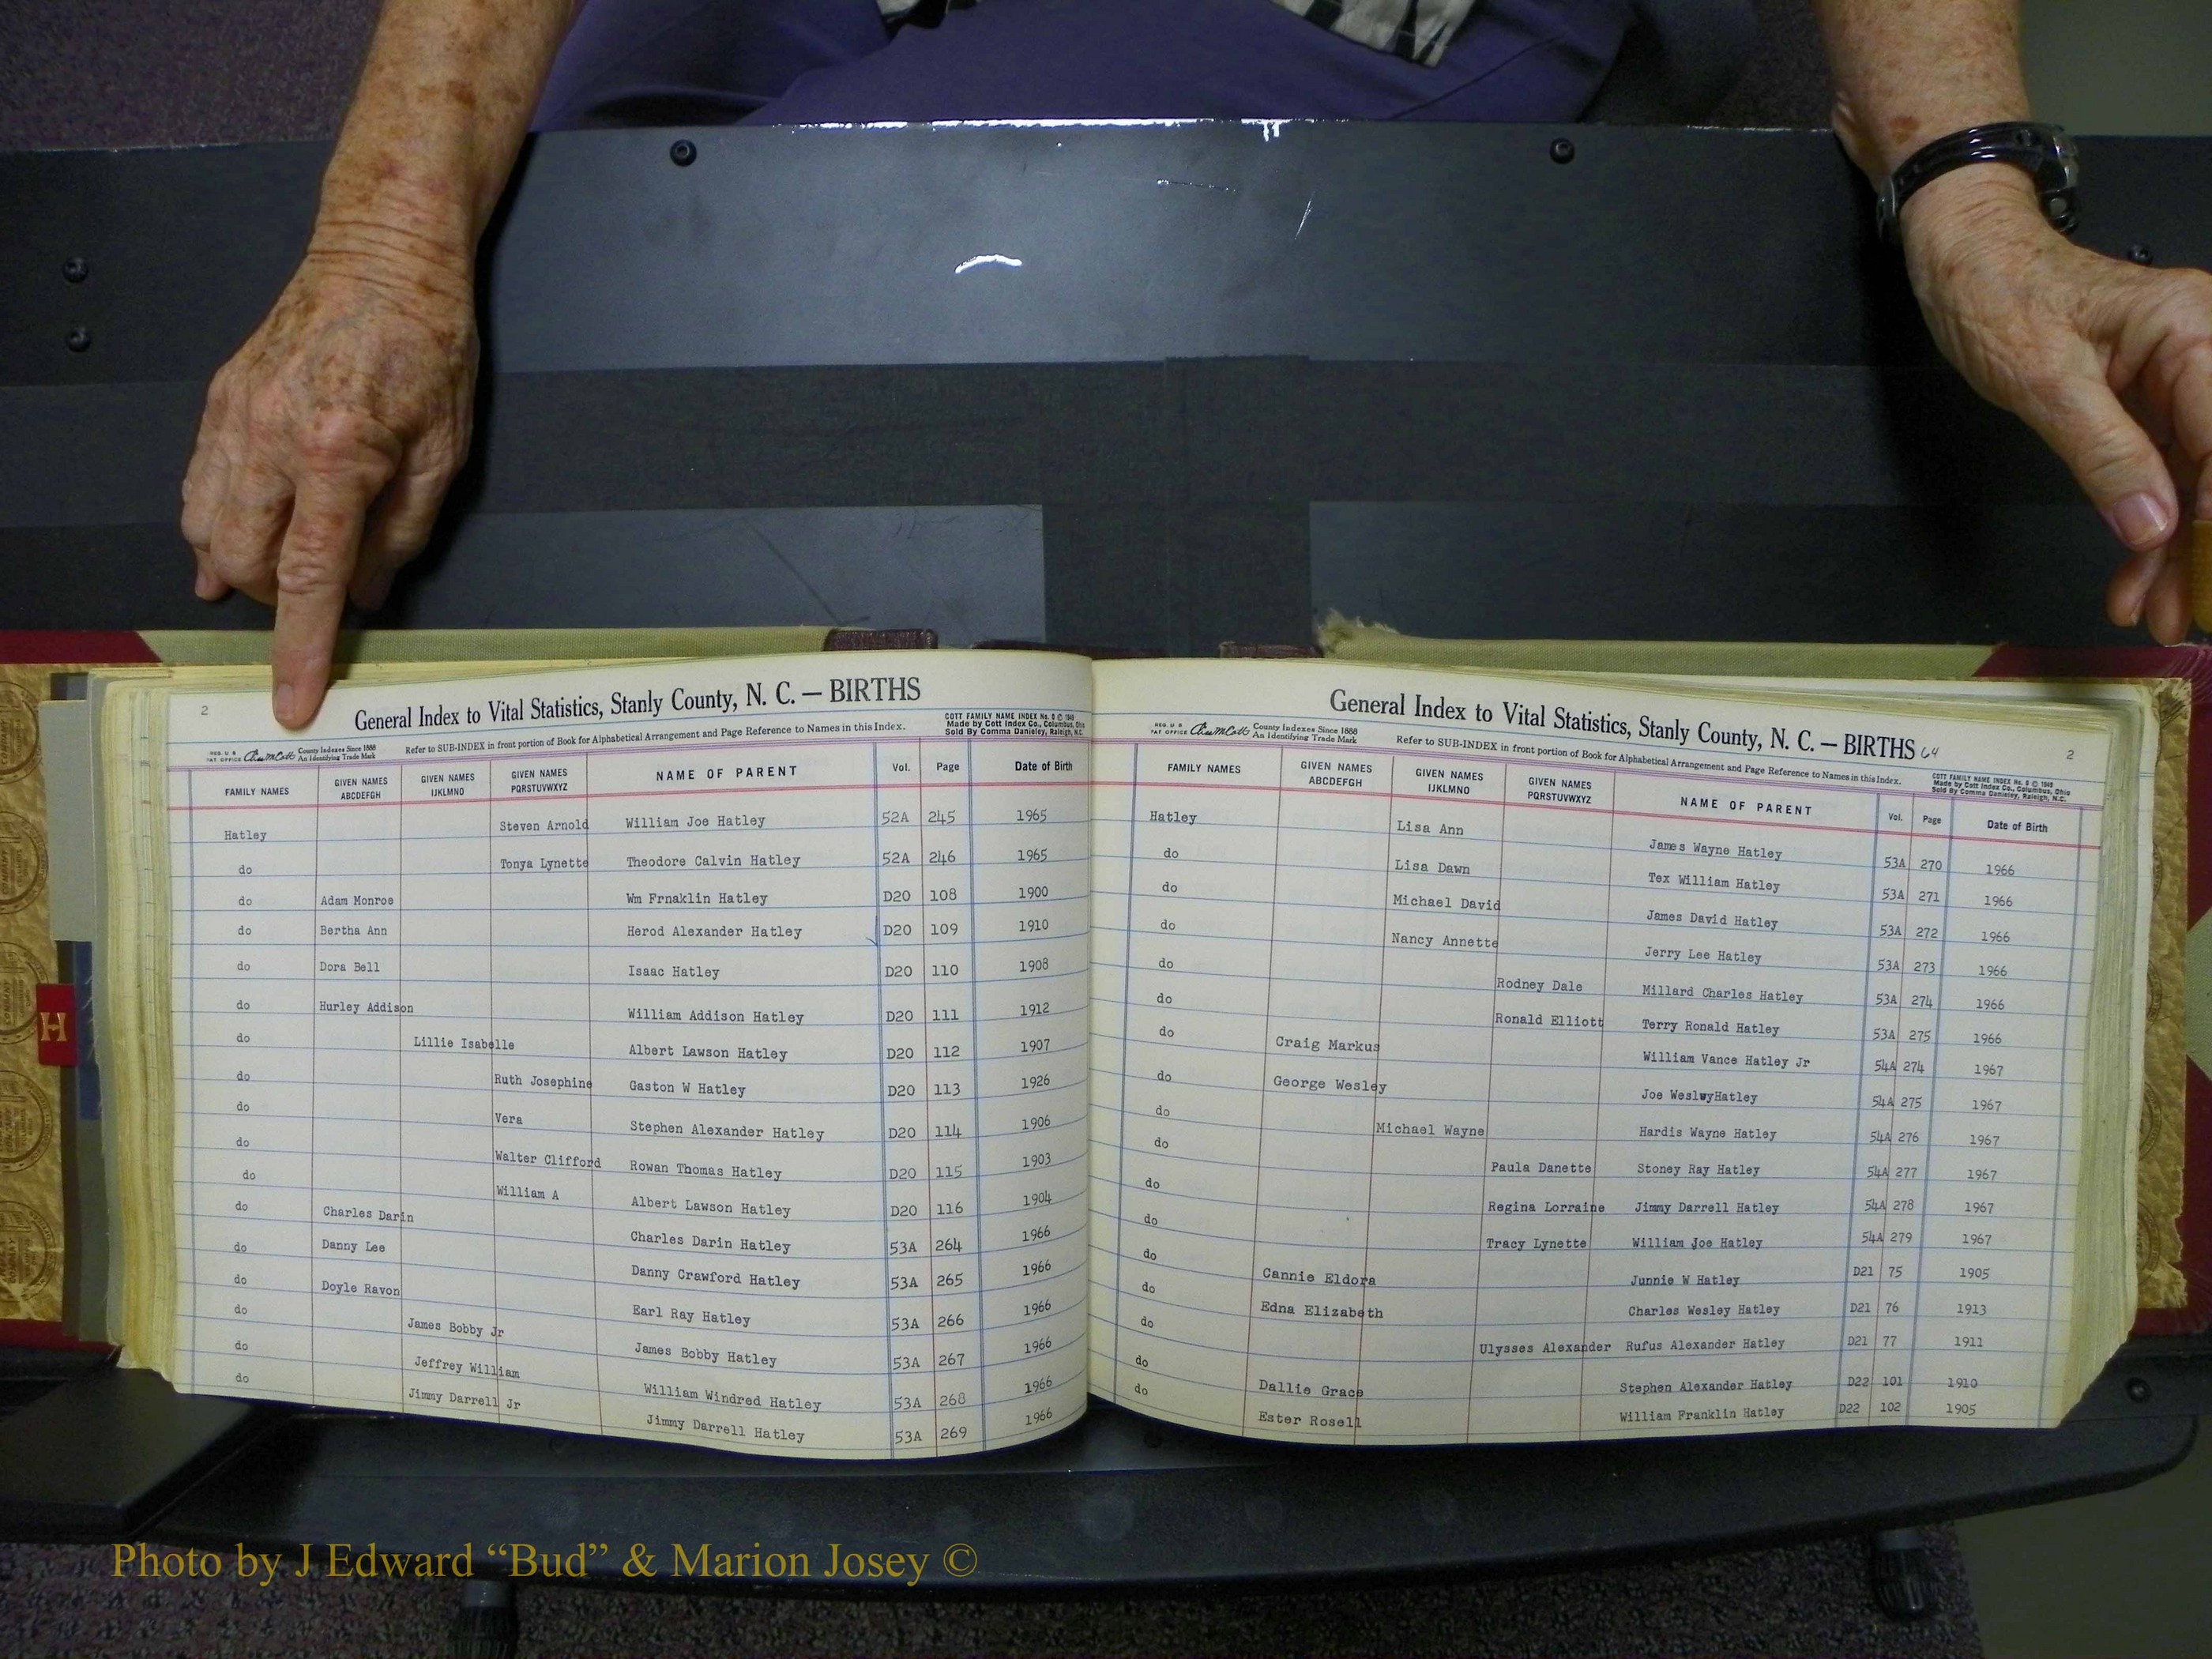 2
General Index to Vital Statistics, Stanly County, N. C. — BIRTHS
COTT FAMILY NAME INDEX No. 8 © 1948
Made by Cott Index Co., Columbus, Ohio
Sold By Comma Danieley, Raleigh, N.C.
REG. U S
PAT. OFFICE
County Indexes Since 1888
An Identifying Trade Mark
Refer to SUB-INDEX in front portion of Book for Alphabetical Arrangement and Page Reference to Names in this Index.
FAMILY NAMES GIVEN NAMES ABCDEFGH GIVEN NAMES IJKLMNO GIVEN NAMES PQRSTUVWXYZ NAME OF PARENT Vol. Page Date of Birth
Hatley Steven Arnold William Joe Hatley 52A 245 1965
do Tonya Lynette Theodore Calvin Hatley 52A 246 1965
do Adam Monroe Wm Frnaklin Hatley D20 108 1900
do Bertha Ann Herod Alexander Hatley D20 109 1910
do Dora Bell Isaac Hatley D20 110 1908
do Hurley Addison William Addison Hatley D20 111 1912
do Lillie Isabelle Albert Lawson Hatley D20 112 1907
do Ruth Josephine Gaston W Hatley D20 113 1926
do Vera Stephen Alexander Hatley D20 114 1906
do Walter Clifford Rowan Thomas Hatley D20 115 1903
do William A Albert Lawson Hatley D20 116 1904
do Charles Darin Charles Darin Hatley 53A 264 1966
do Danny Lee Danny Crawford Hatley 53A 265 1966
do Doyle Ravon Earl Ray Hatley 53A 266 1966
do James Bobby Jr James Bobby Hatley 53A 267 1966
do Jeffrey William William Windred Hatley 53A 268 1966
do Jimmy Darrell Jr Jimmy Darrell Hatley 53A 269 1966
H
General Index to Vital Statistics, Stanly County, N. C. — BIRTHS 64
2
REG. U S
PAT OFFICE
County Indexes Since 1888
An Identifying Trade Mark
Refer to SUB-INDEX in front portion of Book for Alphabetical Arrangement and Page Reference to Names in this Index.
COTT FAMILY NAME INDEX No. 8 © 1948
Made by Cott Index Co., Columbus, Ohio
Sold By Comma Danieley, Raleigh, N.C.
FAMILY NAMES GIVEN NAMES ABCDEFGH GIVEN NAMES IJKLMNO GIVEN NAMES PQRSTUVWXYZ NAME OF PARENT Vol. Page Date of Birth
Hatley Lisa Ann James Wayne Hatley 53A 270 1966
do Lisa Dawn Tex William Hatley 53A 271 1966
do Michael David James David Hatley 53A 272 1966
do Nancy Annette Jerry Lee Hatley 53A 273 1966
do Rodney Dale Millard Charles Hatley 53A 274 1966
do Ronald Elliott Terry Ronald Hatley 53A 275 1966
do Craig Markus William Vance Hatley Jr 54A 274 1967
do George Wesley Joe WeslwyHatley 54A 275 1967
do Michael Wayne Hardis Wayne Hatley 54A 276 1967
do Paula Danette Stoney Ray Hatley 54A 277 1967
do Regina Lorraine Jimmy Darrell Hatley 54A 278 1967
do Tracy Lynette William Joe Hatley 54A 279 1967
do Cannie Eldora Junnie W Hatley D21 75 1905
do Edna Elizabeth Charles Wesley Hatley D21 76 1913
do Ulysses Alexander Rufus Alexander Hatley D21 77 1911
do Dallie Grace Stephen Alexander Hatley D22 101 1910
do Ester Rosell William Franklin Hatley D22 102 1905
Photo by J Edward “Bud” & Marion Josey ©